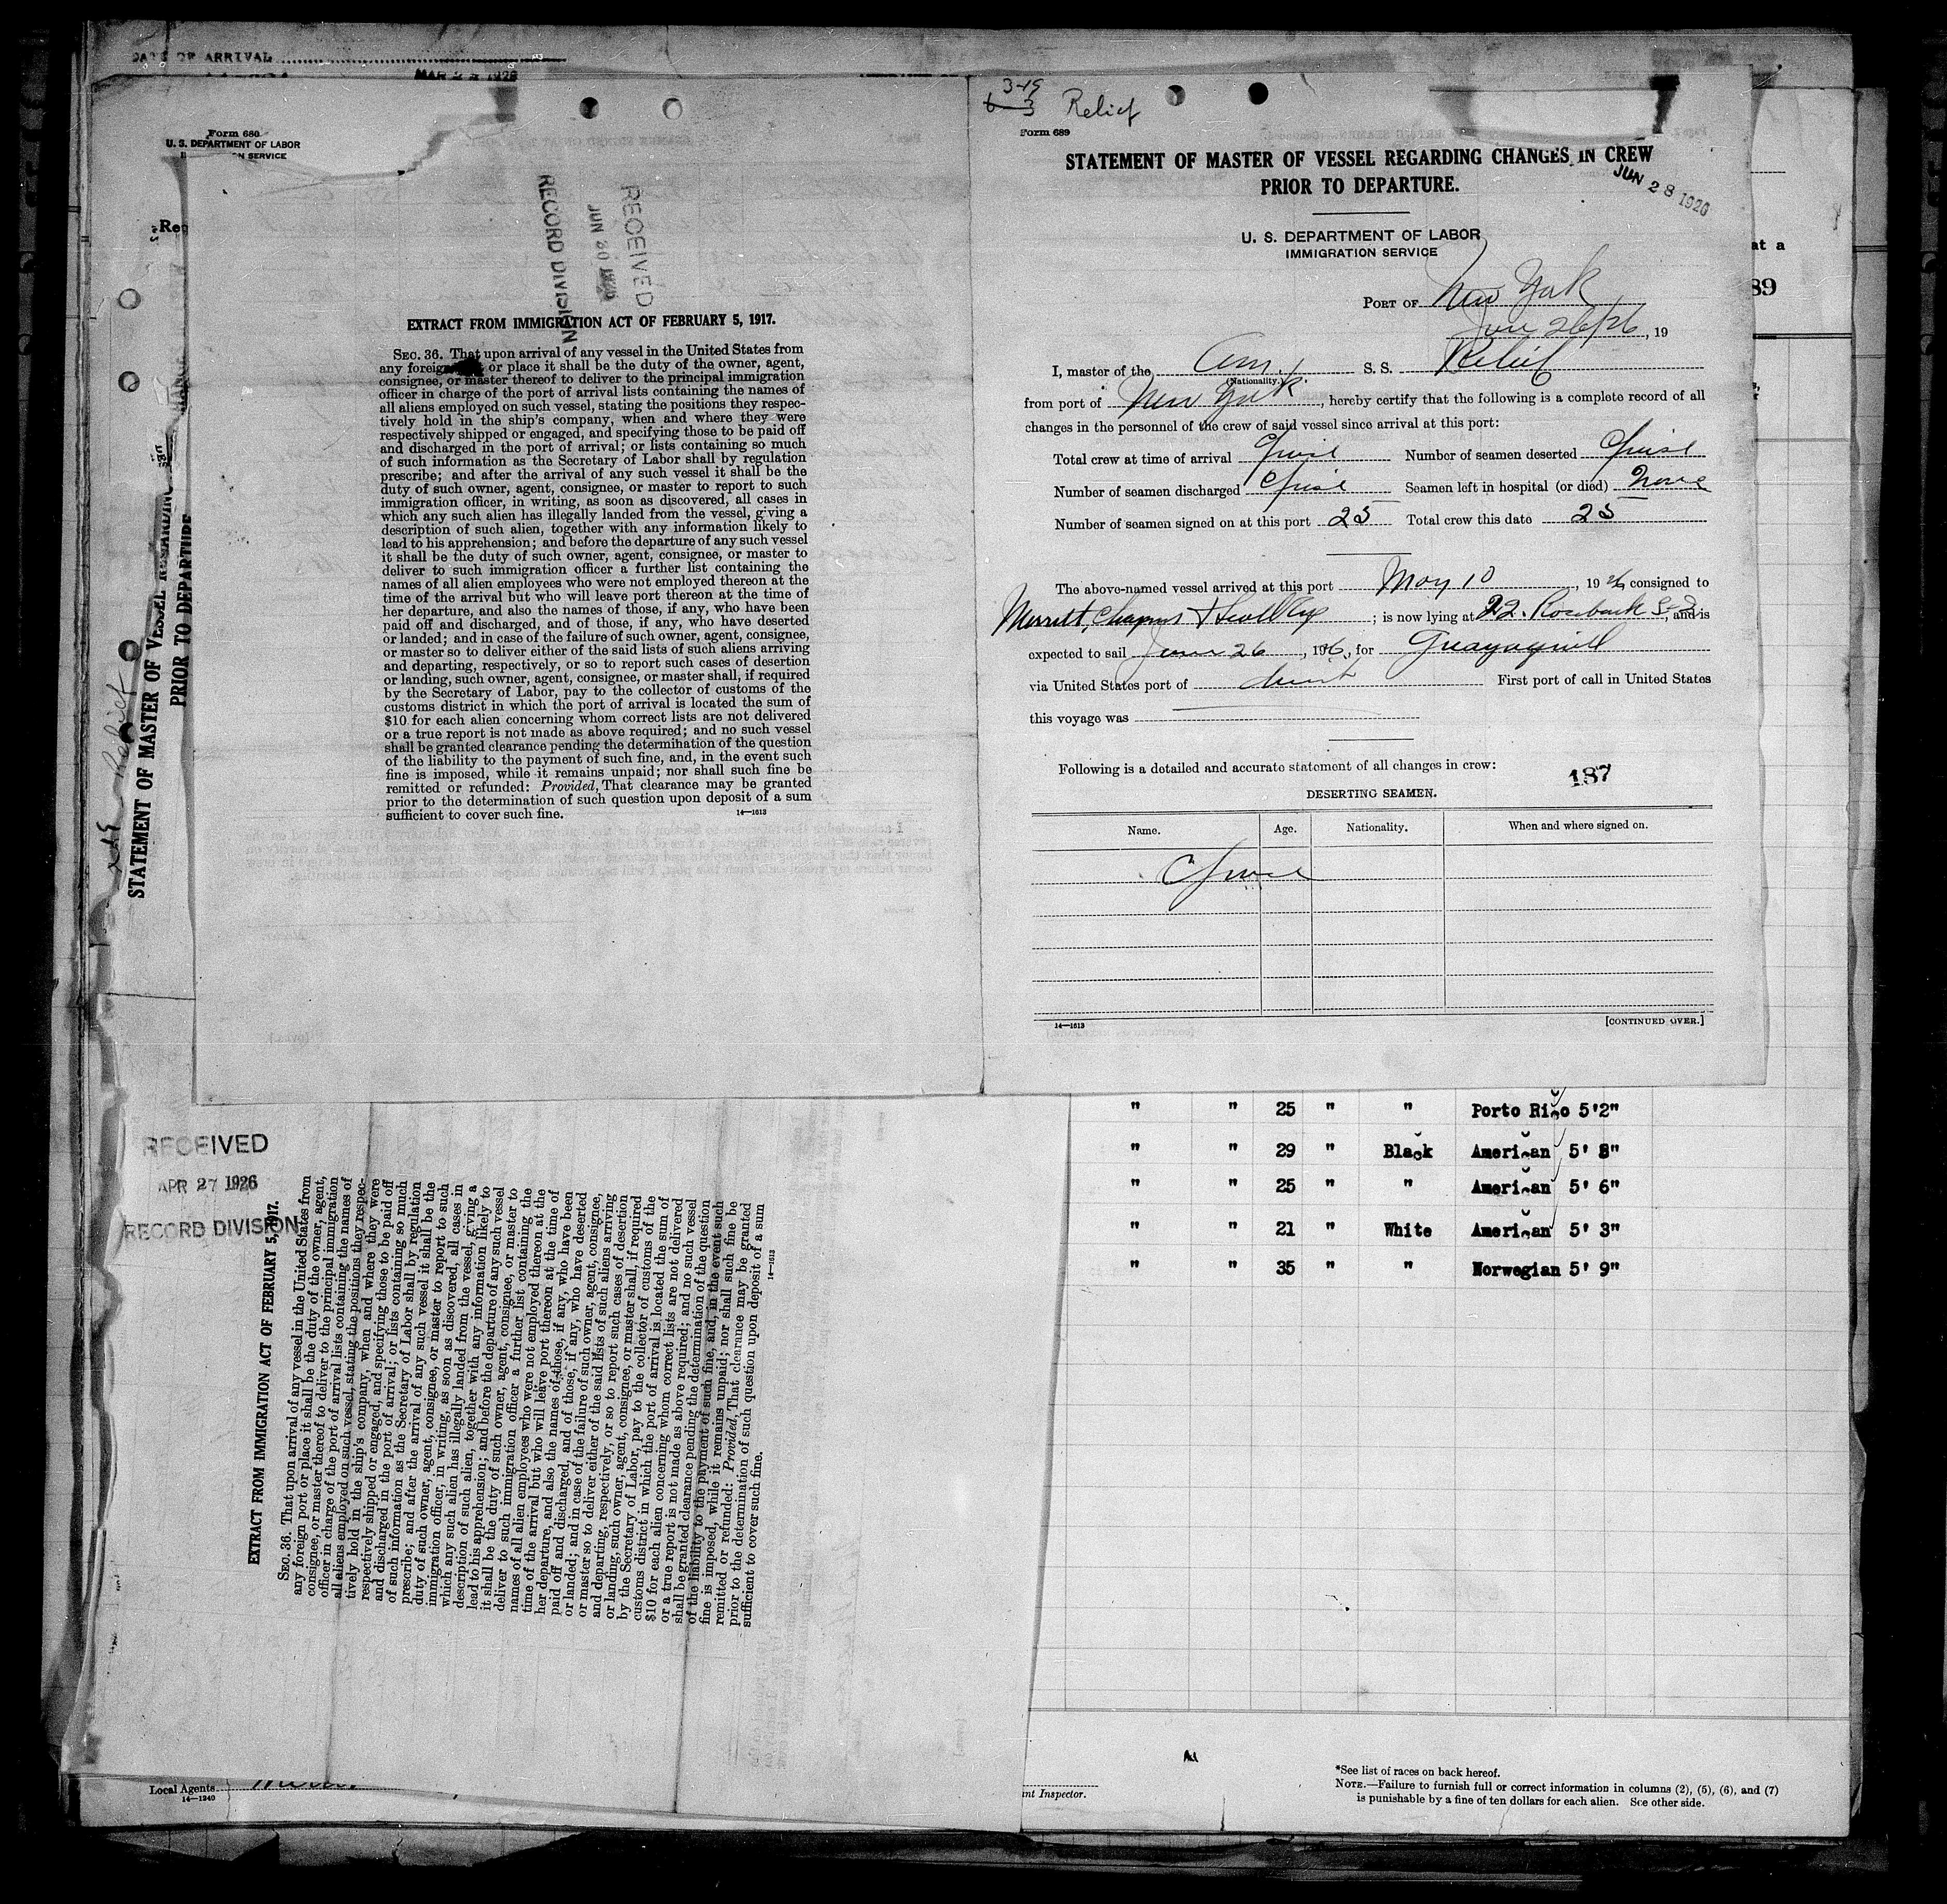 DATE OF ARRIVAL
MAR 1926
Form 680
U. S. DEPARTMENT OF LABOR
N SERVICE
Req
RECEIVED
JUN
RECORD DIVISION
EXTRACT FROM IMMIGRATION ACT OF FEBRUARY 5, 1917.
SEC. 36. That upon arrival of any vessel in the United States from
any foreign or place it shall be the duty of the owner, agent,
consignee, or master thereof to deliver to the principal immigration
officer in charge of the port of arrival lists containing the names of
all aliens employed on such vessel, stating the positions they respec-
tively hold in the ship's company, when and where they were
respectively shipped or engaged, and specifying those to be paid off
and discharged in the port of arrival; or lists containing so much
of such information as the Secretary of Labor shall by regulation
prescribe; and after the arrival of any such vessel it shall be the
duty of such owner, agent, consignee, or master to report to such
immigration officer, in writing, as soon as discovered, all cases in
which any such alien has illegally landed from the vessel, giving a
description of such alien, together with any information likely to
lead to his apprehension; and before the departure of any such vessel
it shall be the duty of such owner, agent, consignee, or master to
deliver to such immigration officer a further list containing the
names of all alien employees who were not employed thereon at the
time of the arrival but who will leave port thereon at the time of
her departure, and also the names of those, if any, who have been
paid off and discharged, and of those, if any, who have deserted
or landed; and in case of the failure of such owner, agent, consignee,
or master so to deliver either of the said lists of such aliens arriving
and departing, respectively, or so to report such cases of desertion
or landing, such owner, agent, consignee, or master shall, if required
by the Secretary of Labor, pay to the collector of customs of the
customs district in which the port of arrival is located the sum of
$10 for each alien concerning whom correct lists are not delivered
or a true report is not made as above required; and no such vessel
shall be granted clearance pending the determination of the question
of the liability to the payment of such fine, and, in the event such
fine is imposed, while it remains unpaid; nor shall such fine be
remitted or refunded: Provided, That clearance may be granted
prior to the determination of such question upon deposit of a sum
sufficient to cover such fine.
14—1613
3-19
6 3 Relief
Form 689
STATEMENT OF MASTER OF VESSEL REGARDING CHANGES IN CREW
PRIOR TO DEPARTURE.
JUN 28 1926
U. S. DEPARTMENT OF LABOR
IMMIGRATION SERVICE
PORT OF New York
June 26/26, 19
I, master of the Am. S. S. Relief
(Nationality.)
from port of New York, hereby certify that the following is a complete record of all
changes in the personnel of the crew of said vessel since arrival at this port:
Total crew at time of arrival Number of seamen deserted
Number of seamen discharged Seamen left in hospital (or died) None
Number of seamen signed on at this port 25 Total crew this date 25
The above-named vessel arrived at this port May 10, 1926 consigned to
Merritt, Chapman & Scott Corp; is now lying at 22. Rosebank S-I, and is
expected to sail June 26, 1926, for Guayaquill
via United States port of direct First port of call in United States
this voyage was
Following is a detailed and accurate statement of all changes in crew:
187
DESERTING SEAMEN.
Name. Age. Nationality. When and where signed on.
14—1613 [CONTINUED OVER.]
at a
89
STATEMENT OF MASTER OF VESSEL REGARDING CHANGE
PRIOR TO DEPARTURE
Relief
" " 25 " " Porto Rico 5'2"
" " 29 " Black American 5' 8"
" " 25 " " American 5' 6"
" " 21 " White American 5' 3"
" " 35 " " Norwegian 5' 9"
RECEIVED
APR 27 1926
RECORD DIVISION
EXTRACT FROM IMMIGRATION ACT OF FEBRUARY 5, 1917.
SEC. 36. That upon arrival of any vessel in the United States from
any foreign port or place it shall be the duty of the owner, agent,
consignee, or master thereof to deliver to the principal immigration
officer in charge of the port of arrival lists containing the names of
all aliens employed on such vessel, stating the positions they respec-
tively hold in the ship's company, when and where they were
respectively shipped or engaged, and specifying those to be paid off
and discharged in the port of arrival; or lists containing so much
of such information as the Secretary of Labor shall by regulation
prescribe; and after the arrival of any such vessel it shall be the
duty of such owner, agent, consignee, or master to report to such
immigration officer, in writing, as soon as discovered, all cases in
which any such alien has illegally landed from the vessel, giving a
description of such alien, together with any information likely to
lead to his apprehension; and before the departure of any such vessel
it shall be the duty of such owner, agent, consignee, or master to
deliver to such immigration officer a further list containing the
names of all alien employees who were not employed thereon at the
time of the arrival but who will leave port thereon at the time of
her departure, and also the names of those, if any, who have been
paid off and discharged, and of those, if any, who have deserted
or landed; and in case of the failure of such owner, agent, consignee,
or master so to deliver either of the said lists of such aliens arriving
and departing, respectively, or so to report such cases of desertion
or landing, such owner, agent, consignee, or master shall, if required
by the Secretary of Labor, pay to the collector of customs of the
customs district in which the port of arrival is located the sum of
$10 for each alien concerning whom correct lists are not delivered
or a true report is not made as above required; and no such vessel
shall be granted clearance pending the determination of the question
of the liability to the payment of such fine, and, in the event such
fine is imposed, while it remains unpaid; nor shall such fine be
remitted or refunded: Provided, That clearance may be granted
prior to the determination of such question upon deposit of a sum
sufficient to cover such fine.
14—1613
Local Agents
14—1240
nt Inspector.
*See list of races on back hereof.
NOTE.—Failure to furnish full or correct information in columns (2), (5), (6), and (7)
is punishable by a fine of ten dollars for each alien. See other side.